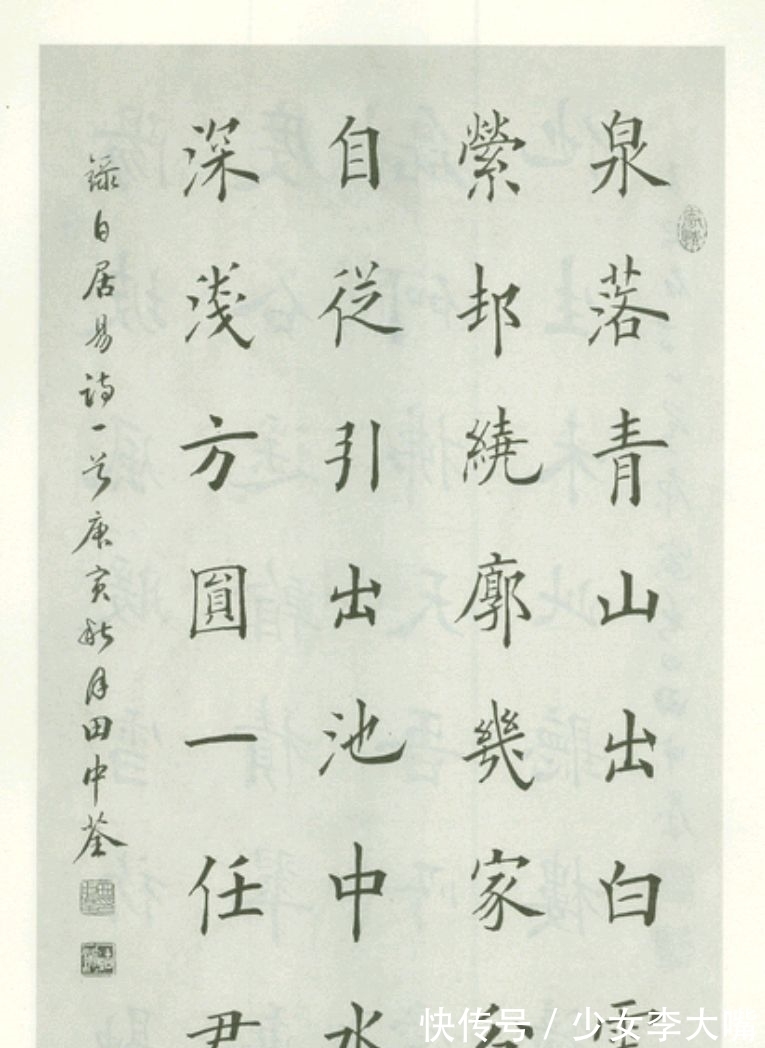 泉落青山出白雲
縈邨繞廓幾家分
自從引出池中水
深淺方圓一任君
錄白居易詩一首庚寅秋月田中荃
快传号 / 少女李大嘴